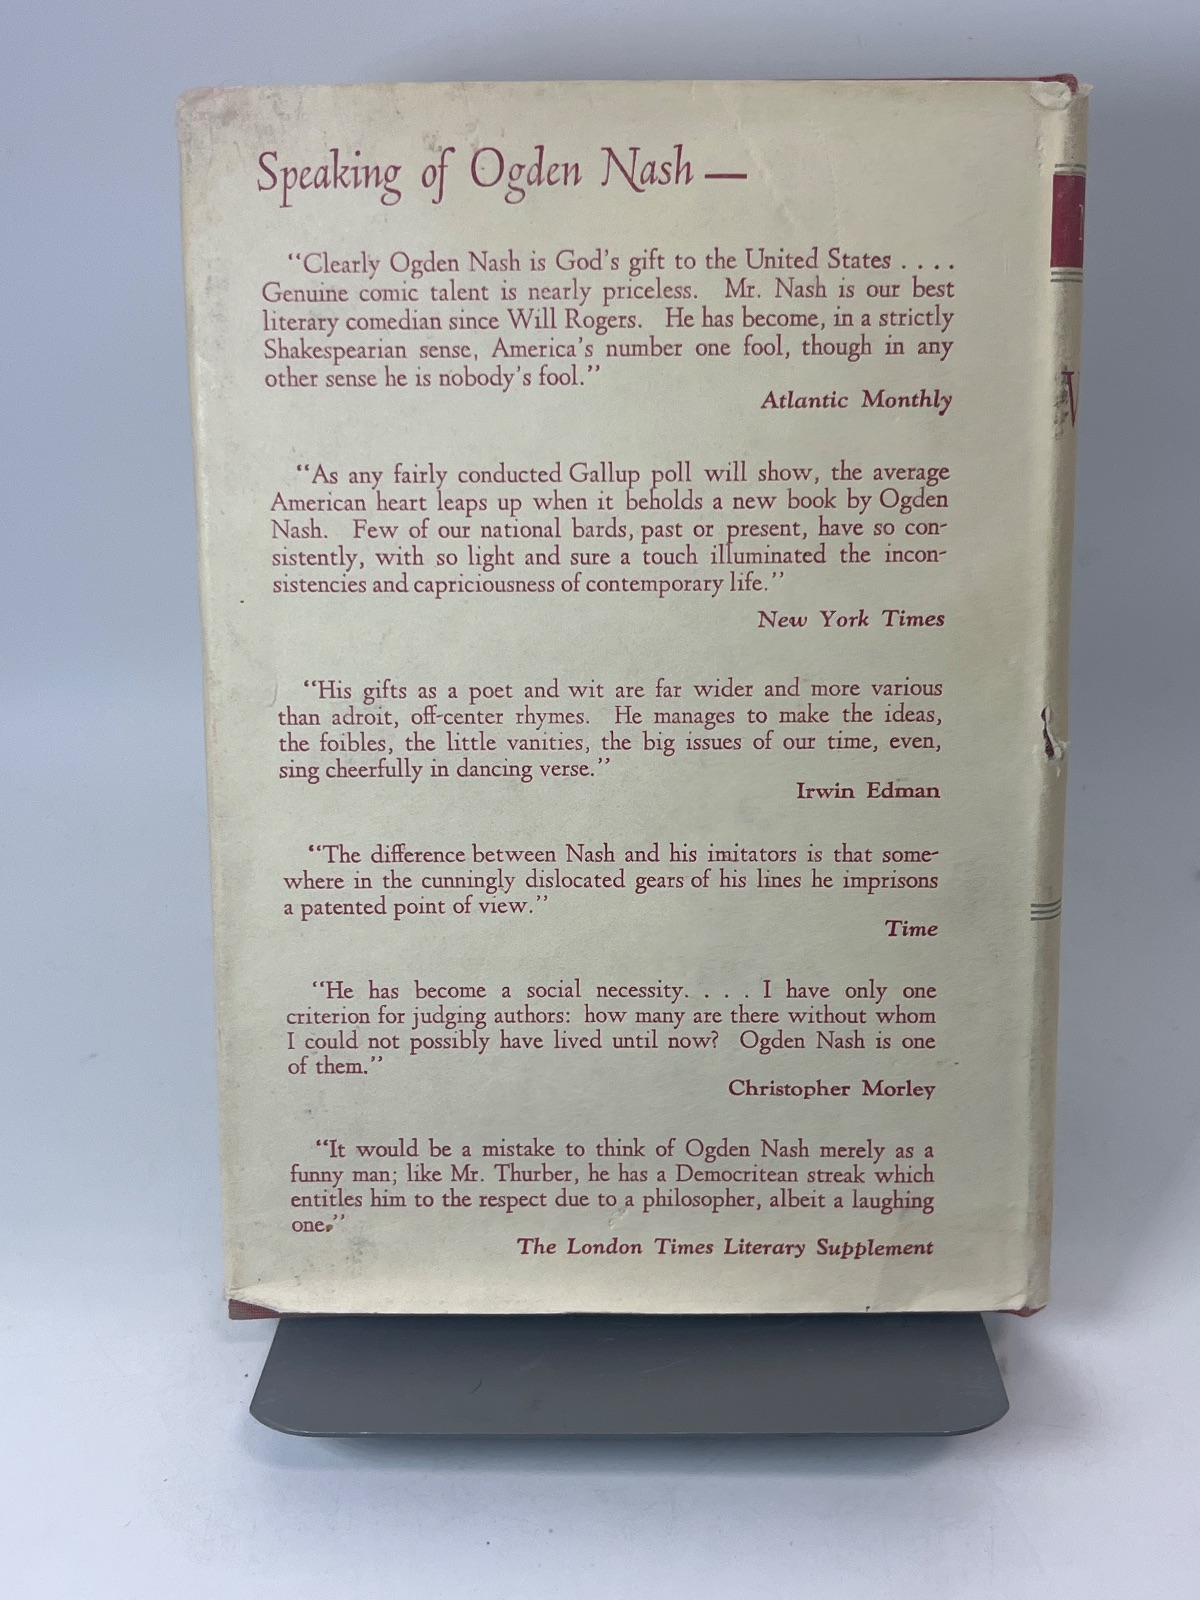 Speaking of Ogden Nash —
“Clearly Ogden Nash is God’s gift to the United States . . . .
Genuine comic talent is nearly priceless. Mr. Nash is our best
literary comedian since Will Rogers. He has become, in a strictly
Shakespearian sense, America’s number one fool, though in any
other sense he is nobody’s fool.”
Atlantic Monthly
“As any fairly conducted Gallup poll will show, the average
American heart leaps up when it beholds a new book by Ogden
Nash. Few of our national bards, past or present, have so con-
sistently, with so light and sure a touch illuminated the incon-
sistencies and capriciousness of contemporary life.”
New York Times
“His gifts as a poet and wit are far wider and more various
than adroit, off-center rhymes. He manages to make the ideas,
the foibles, the little vanities, the big issues of our time, even,
sing cheerfully in dancing verse.”
Irwin Edman
“The difference between Nash and his imitators is that some-
where in the cunningly dislocated gears of his lines he imprisons
a patented point of view.”
Time
“He has become a social necessity. . . . I have only one
criterion for judging authors: how many are there without whom
I could not possibly have lived until now? Ogden Nash is one
of them.”
Christopher Morley
“It would be a mistake to think of Ogden Nash merely as a
funny man; like Mr. Thurber, he has a Democritean streak which
entitles him to the respect due to a philosopher, albeit a laughing
one.”
The London Times Literary Supplement